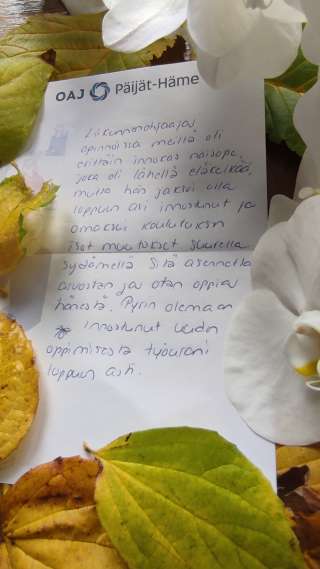 OAJ Päijät-Häme
Liikunnanohjaajaj
opinnoissa meillä oli
erittäin innokas naisope,
joka oli lähellä eläkeikää,
mutta hän jaksoi olla
loppuun asti innostunut ja
omaksui koulutuksen
isot muutokset suurella
sydämellä. Sitä asennetta
arvostan ja otan oppia
hänestä. Pyrin olemaan
innostunut uuden
oppimisesta työurani
loppuun asti.